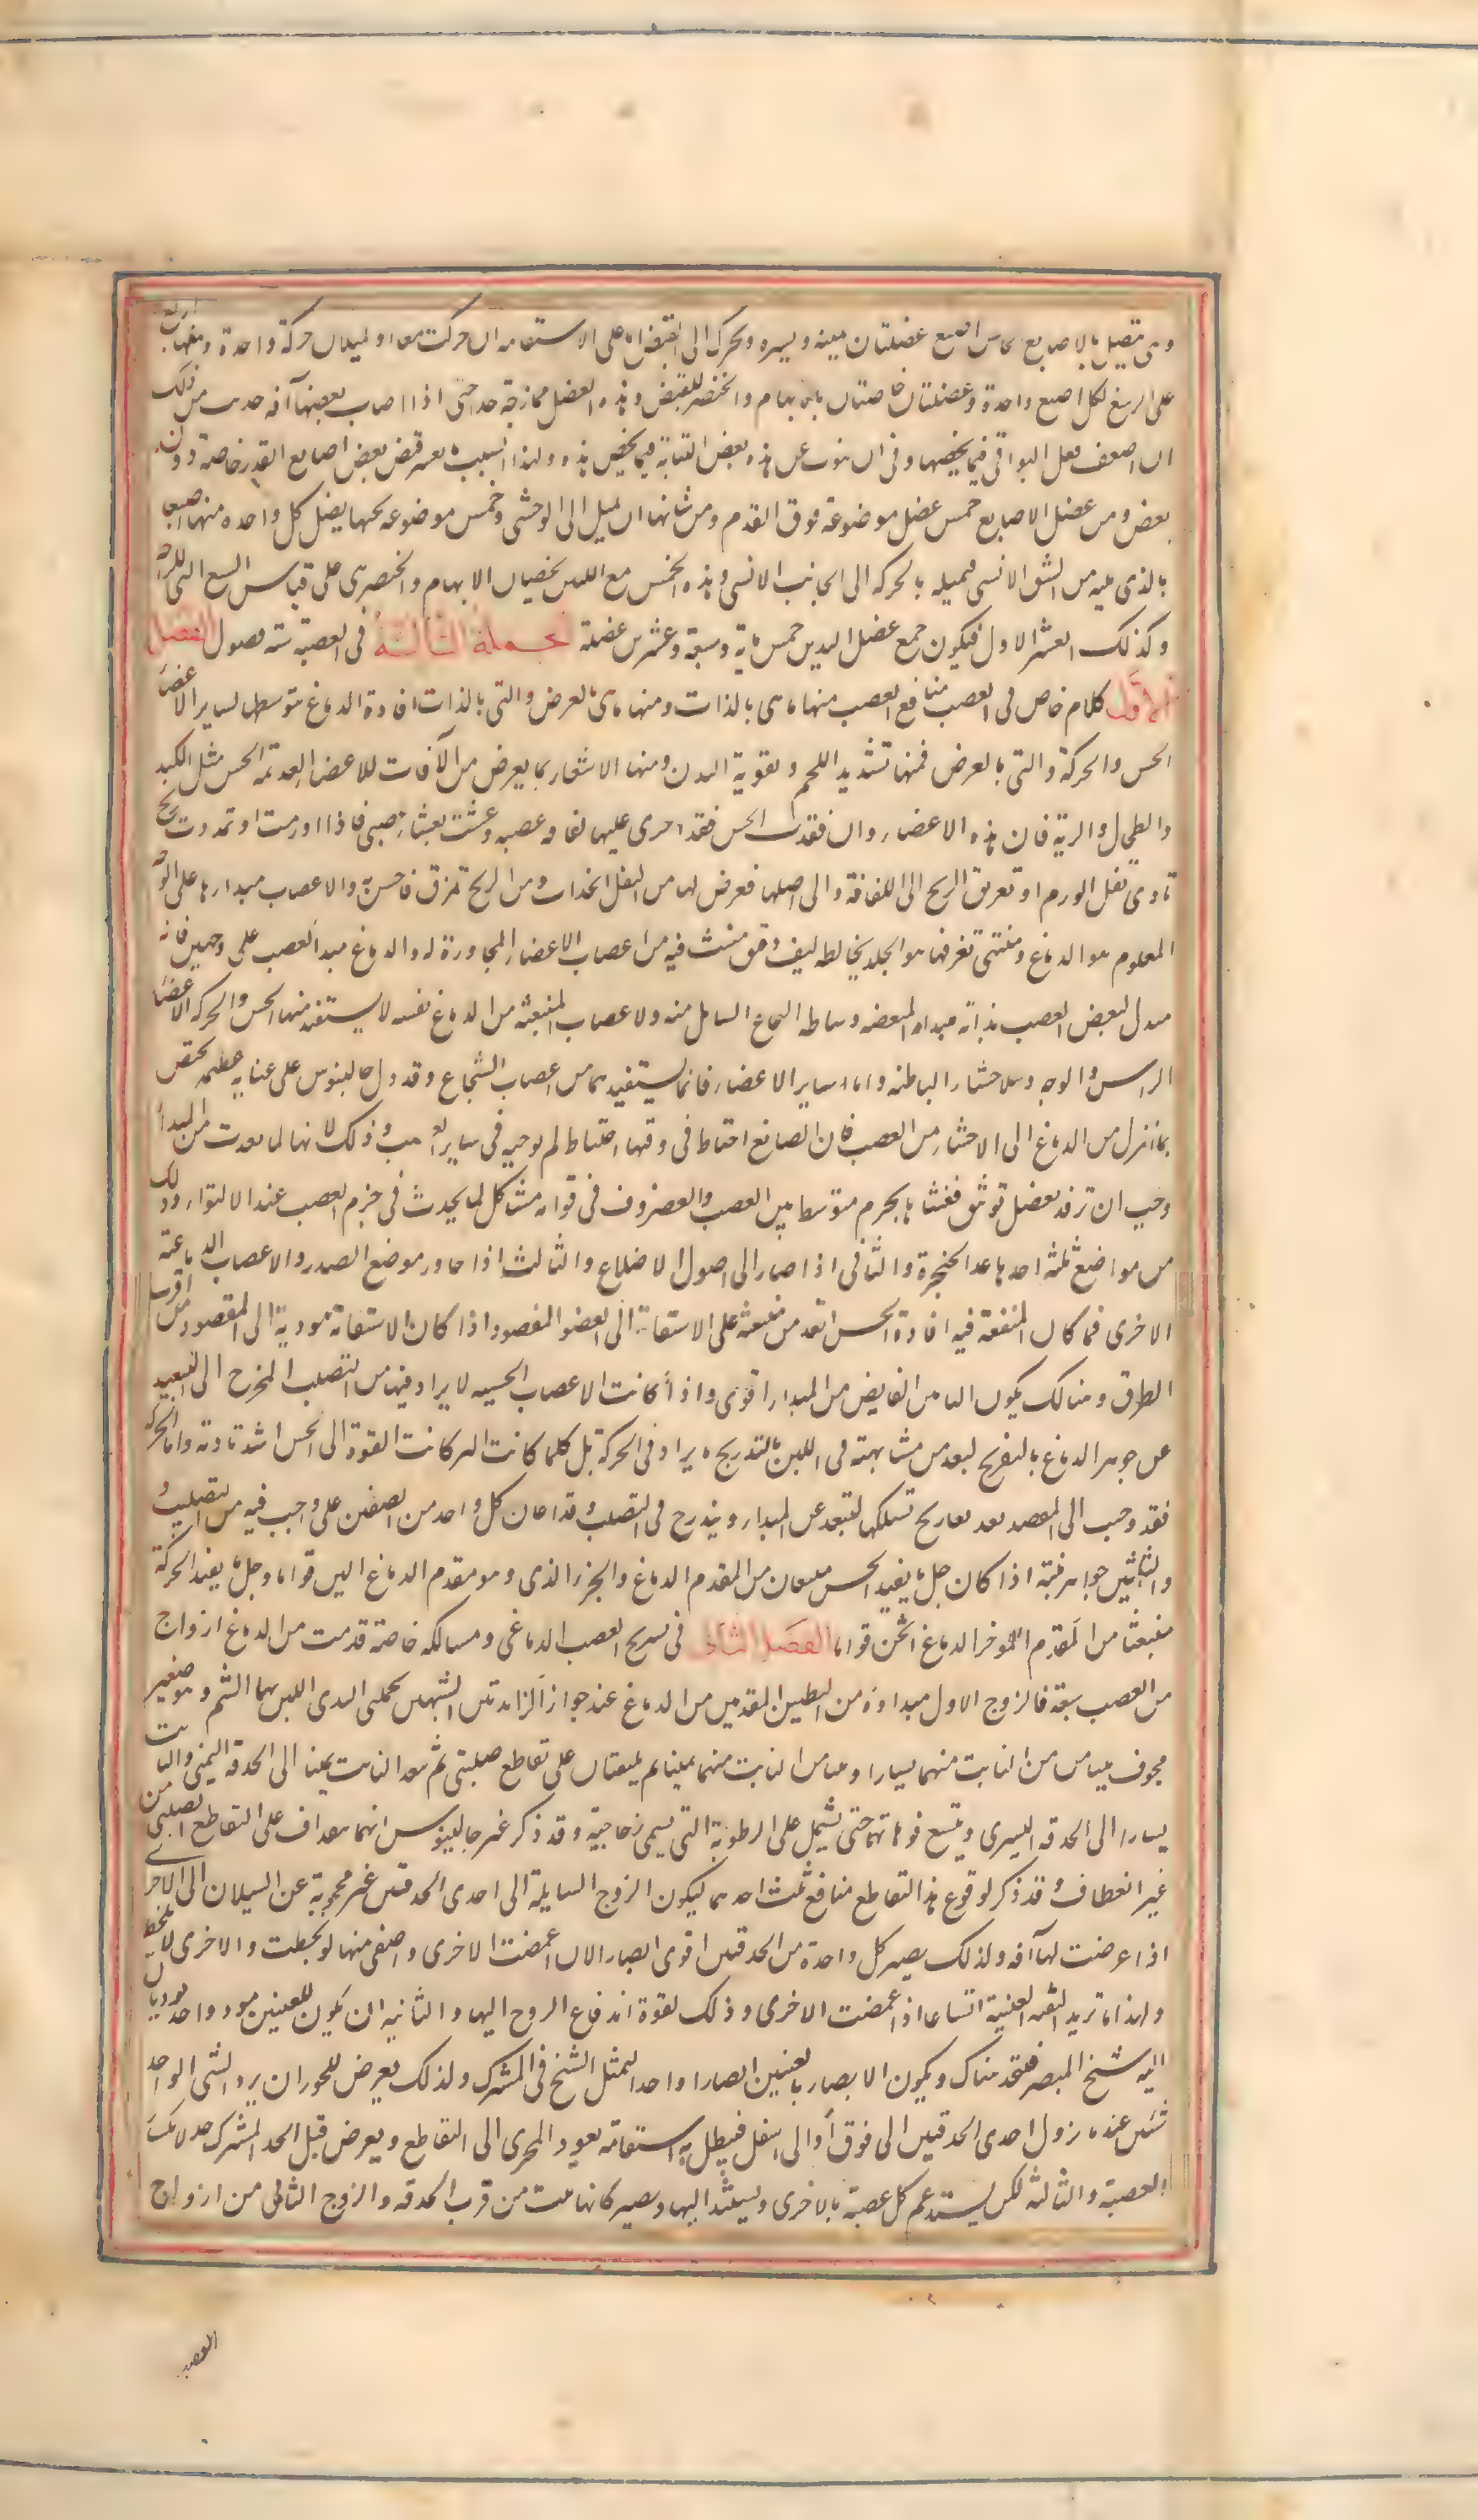 وهى تتصل بالاصابع كل اصبع عضلتان يمنه ويسره وتحرك الى القبض اما على الاستقامه ان حركت معا او لميلان حركة واحدة ومنها اربع
على الرسغ لكل اصبع واحدة وعضلتان خاصتان بالابهام والخنصر للقبض وهذه العضل ممازجة جدا حتى اذا اصاب بعضها آفه حدث من ذلك
ان اضعف فعل البواقى فيما يخصها وفى ان ينوب عن هذه بعض النيابة فيما يخص هذه ولهذا السبب ما يعسر قبض بعض اصابع القدم خاصة دون
بعض ومن عضل الاصابع خمس عضل موضوعة فوق القدم ومن شانها ان تميل الى الوحشى وخمس موضوعه تحتها يصل كل واحده منها اصبعا
بالذى يليه من الشق الانسى فيميله بالحركه الى الجانب الانسى وهذه الخمس مع اللتين يخصان الابهام والخنصر هى على قياس السبع التى للراحة
وكذلك العشر الاول فيكون جميع عضل البدن خمس ماية وسبعة وعشرين عضلة الجملة الثالثة فى العصب ستة فصول الفصل
الاول كلام خاص فى العصب منافع العصب منها ما هى بالذات ومنها ما هى بالعرض والتى بالذات افادة الدماغ بتوسطها لساير الاعضا
الحس والحركة والتى بالعرض فمنها تشديد اللحم وتقوية البدن ومنها الاشعار بما يعرض من الآفات للاعضا العديمة الحس مثل الكبد
والطحال والرية فان هذه الاعضاء وان فقدت الحس فقد اجرى عليها لفافه عصبيه وغشيت بغشاء عصبى فاذا اورمت او تمددت بريح
تادى ثقل الورم او تفريق الريح الى اللفافة والى اصلها فعرض لها من الثقل انجذاب ومن الريح تمزق فاحس به والاعصاب مبداوها على الوجه
المعلوم هو الدماغ ومنتهى تفرقها هو الجلد يخالطه ليف دقيق منبث فيه من اعصاب الاعضاء المجاورة له والدماغ مبدا العصب على وجهين فانه
مبدا لبعض العصب بذاته ومبدا لبعضه بوساطه النخاع السايل منه والاعصاب المنبعثه من الدماغ نفسه لا يستفيد منها الحس والحركه الا اعضا
الراس والوجه والاحشاء الباطنه واما ساير الاعضاء فانما يستفيدهما من اعصاب النخاع وقد دل جالينوس على عنايه عظيمه تختص
بما نزل من الدماغ الى الاحشاء من العصب فان الصانع احتاط فى وقيها احتياط لم يوجبه فى ساير العصب وذلك لانها لما بعدت من المبدأ
وجب ان ترفد بفضل توثيق فغشاها بجرم متوسط بين العصب والغضروف فى قوامه مشاكل لما يحدث فى جرم العصب عند الالتواء وذلك
من مواضع ثلثه احدها عند الحنجرة والثانى اذا صار الى اصول الاضلاع والثالث اذا جاور موضع الصدر والاعصاب الدماغية
الاخرى فما كان المنفعة فيه افادة الحس انفذ من منبعثه على الاستقامة الى العضو المقصود اذا كان الاستقامة مودية الى المقصود من اقرب
الطرق وهنالك يكون التاثير الفايض من المبداء اقوى واذا كانت الاعصاب الحسيه لا يراد فيها من التصلب المخرج الى التبعيد
عن جوهر الدماغ بالتعريج ليبعد من مشابهته فى اللين بالتدريج ما يراد فى الحركة بل كلما كانت الين كانت القوة الى الحس اشد تادية واما الحركة
فقد وجب الى المقصد بعد تعاريج تسلكها لتبعد عن المبداء ويندرج فى التصلب وقد اعان كل واحد من الصنفين على واجب فيه من التصلب و
والتليين جواهر منبته اذا كان جل ما يفيد الحس منبعثا من المقدم الدماغ والجزء الذى وهو مقدم الدماغ الين قواما وجل ما يفيد الحركة
منبعثا من المقدم الموخر الدماغ اثخن قواما الفصل الثانى فى تشريح العصب الدماغى ومسالكه خاصة قد نبت من الدماغ ازواج
من العصب سبعة فالزوج الاول مبداوه من البطنين المقدمين من الدماغ عند جواز الزايدتين الشبيهتين بحلمتى الثدى اللتين بهما الشم وهو صغير
مجوف يتيامن من النابت منهما يسارا ويتياسر النابت منهما يمينا ثم يلتقيان على تقاطع صليبى ثم ينفذ النابت يمينا الى الحدقة اليمنى والنابت
يسارا الى الحدقه اليسرى ويتسع فوهاتها حتى تشتمل على الرطوبة التى تسمى زجاجية وقد ذكر غير جالينوس انهما ينفذان على التقاطع الصليبى من
غير انعطاف وقد ذكر لوقوع هذا التقاطع منافع ثلث احدهما ليكون الزوج السايلة الى احدى الحدقتين غير محجوبة عن السيلان الى الاخرى
اذا عرضت لها آفه ولذلك يصير كل واحدة من الحدقتين اقوى ابصارا لان اغمضت الاخرى واصفى منها لو لحظت والاخرى لا تلحظ
ولهذا ما تريد الثقبه العنبية اتساعا اذا اغمضت الاخرى وذلك لقوة اندفاع الروح اليها والثانيه ان يكون للعينين مودى واحد يوديان
اليه شبح المبصر فيتحد هناك ويكون الابصار بالعينين ابصارا واحدا لتمثل الشبح فى المشترك ولذلك يعرض للحولان يرى الشى الواحد
شيئين عند ما يزول احدى الحدقتين الى فوق أو الى اسفل فيبطل به استقامة نفوذ المجرى الى التقاطع ويعرض قبل الحد المشترك حد لانكسار
العصبة والثالثه لكى يستدعم كل عصبة بالاخرى ويستند اليها وتصير كانها نبتت من قرب الحدقه والزوج الثانى من ازواج
العصب